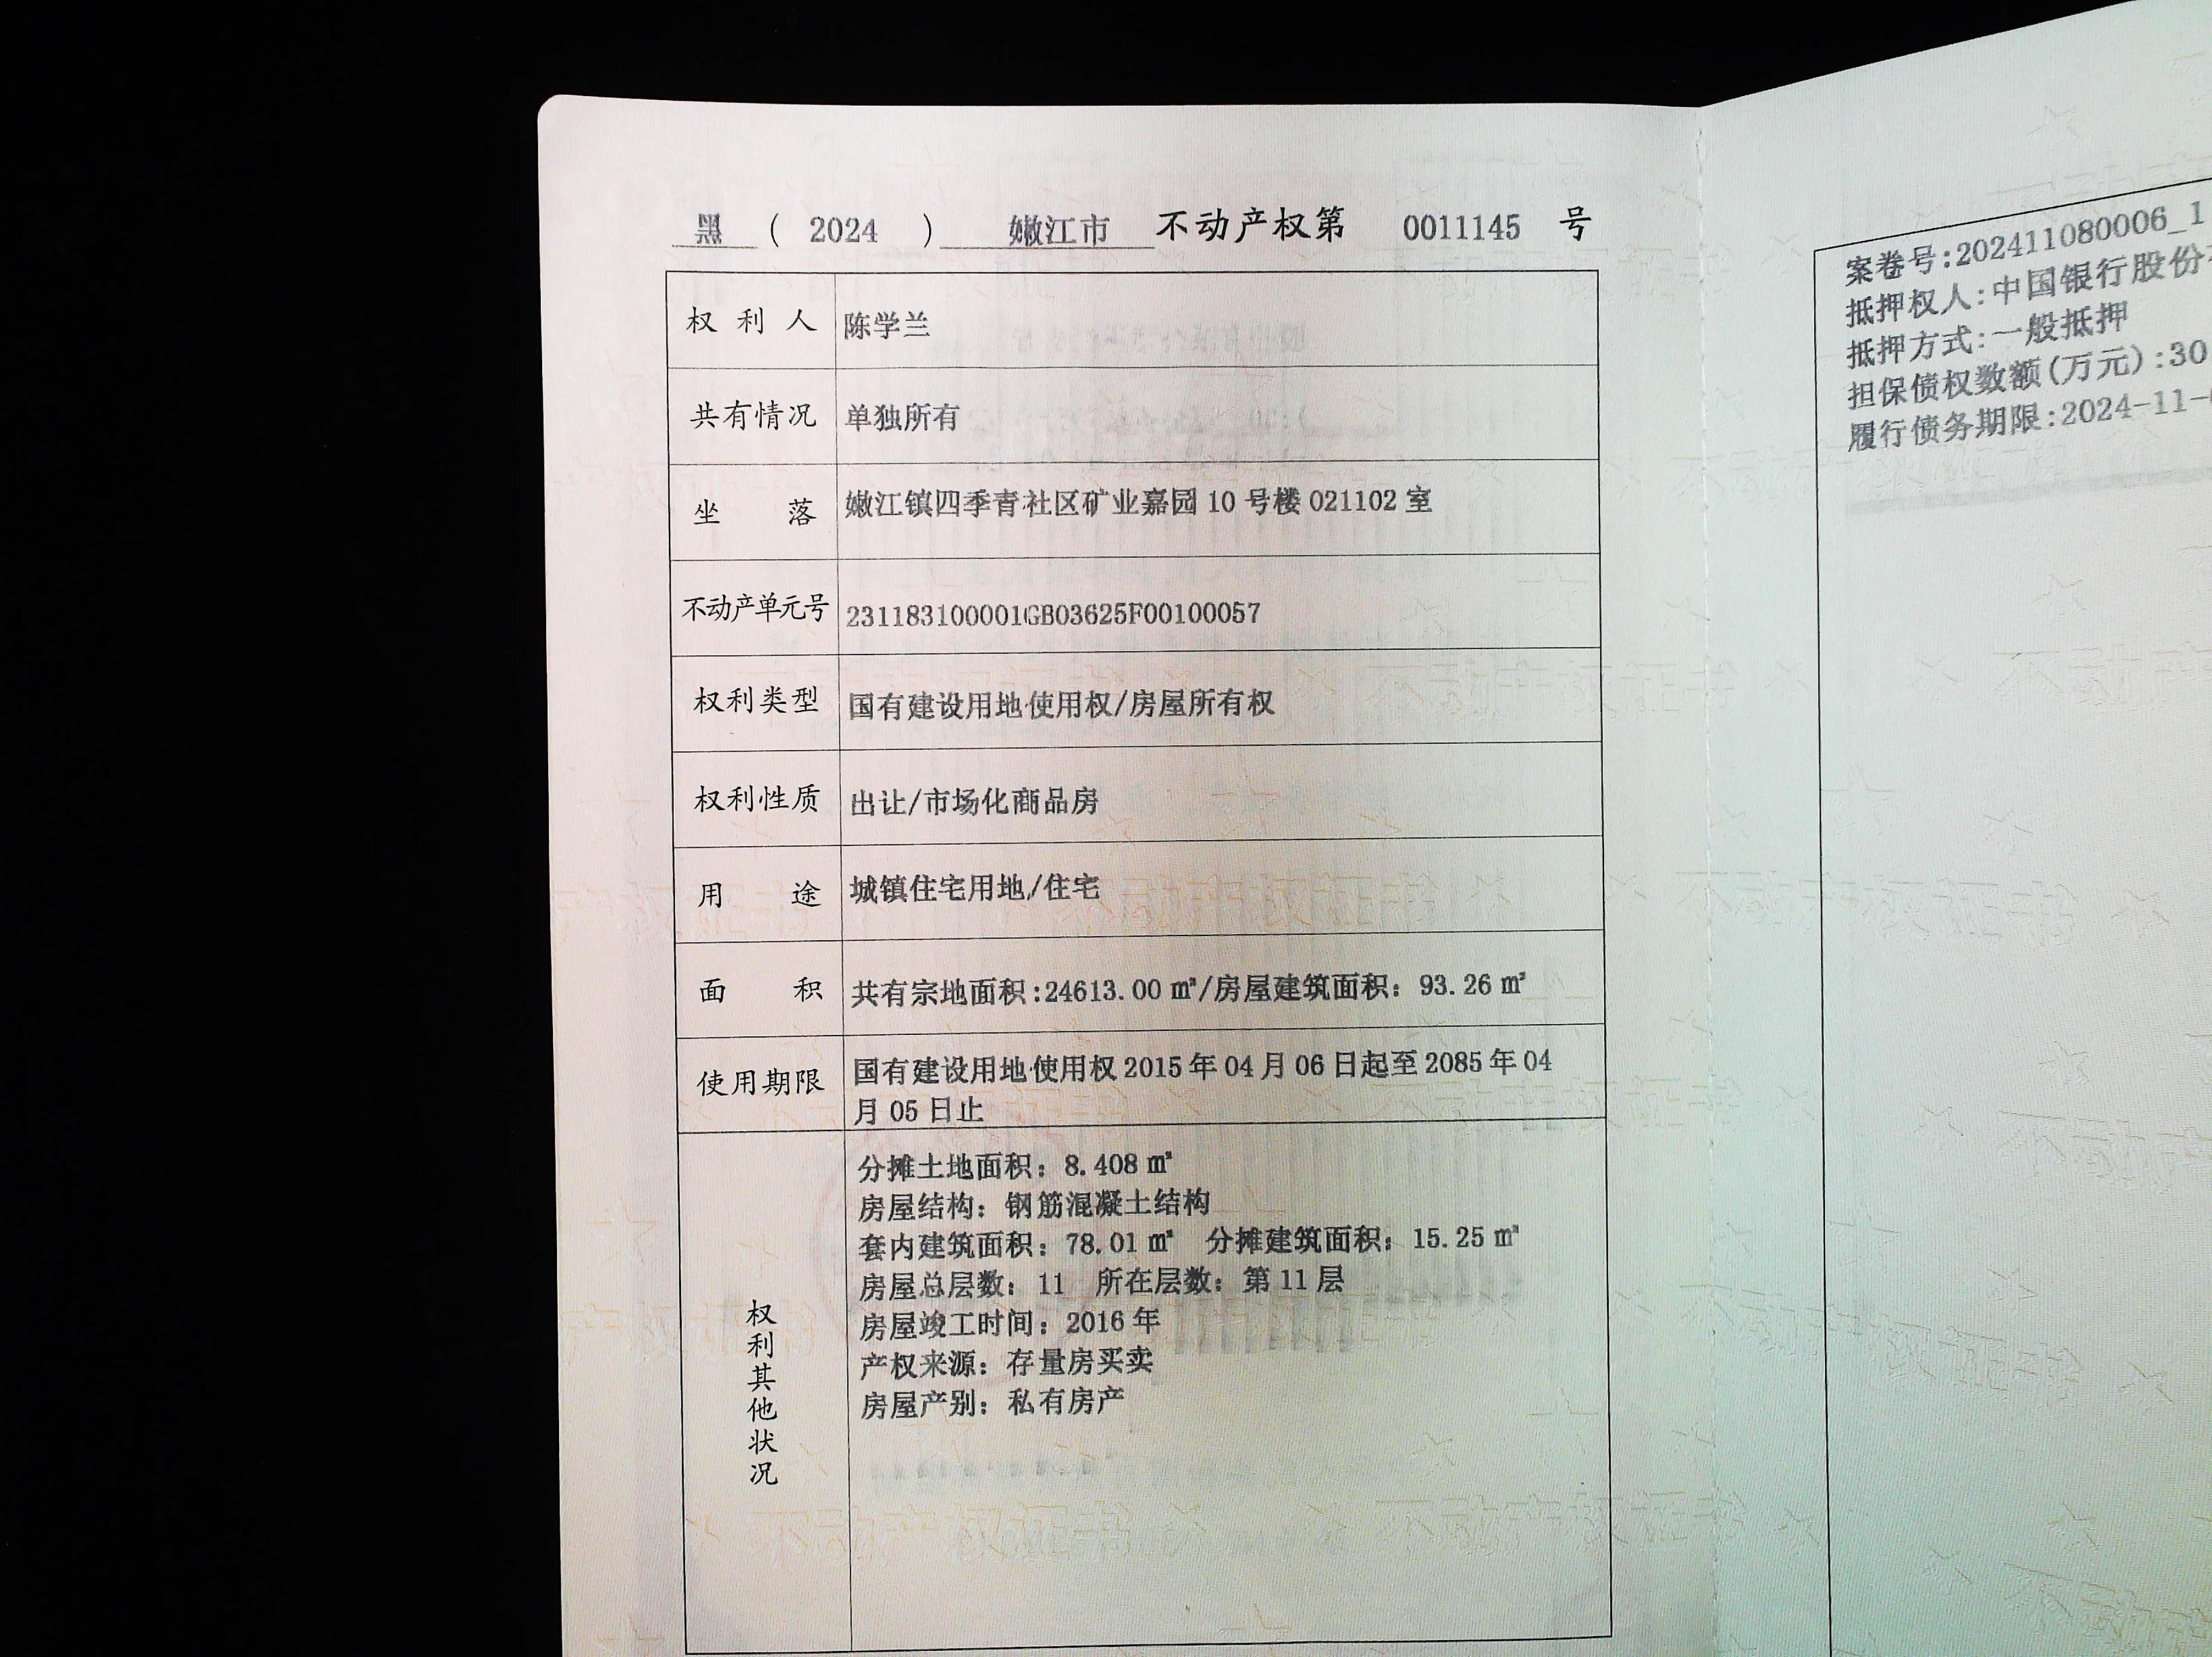 黑 ( 2024 ) 嫩江市 不动产权第 0011145 号
权利人 陈学兰
共有情况 单独所有
坐落 嫩江镇四季青社区矿业嘉园 10 号楼 021102 室
不动产单元号 231183100001GB03625F00100057
权利类型 国有建设用地使用权/房屋所有权
权利性质 出让/市场化商品房
用途 城镇住宅用地/住宅
面积 共有宗地面积:24613.00 ㎡/房屋建筑面积: 93.26 ㎡
使用期限 国有建设用地使用权 2015 年 04 月 06 日起至 2085 年 04
月 05 日止
权利其他状况
分摊土地面积: 8.408 ㎡
房屋结构: 钢筋混凝土结构
套内建筑面积: 78.01 ㎡ 分摊建筑面积: 15.25 ㎡
房屋总层数: 11 所在层数: 第 11 层
房屋竣工时间: 2016 年
产权来源: 存量房买卖
房屋产别: 私有房产
案卷号:202411080006_1
抵押权人:中国银行股份
抵押方式:一般抵押
担保债权数额(万元):30
履行债务期限:2024-11-